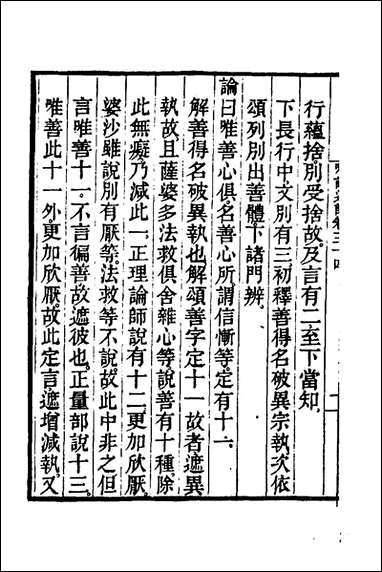 行蘊捨。別受捨故。及言有二。至下當知。
下長行中文別有三。初釋善得名破異宗執。次依
頌列別出善體。下諸門辨。
論曰。唯善心俱。名善心所。謂信慚等。定有十一。
解善得名破異執也。解頌善字定十一故者。遮異
執故。且薩婆多法救俱舍雜心等。說善有十種。除
此無癡。乃減此一。正理論師說有十二。更加欣厭。
婆沙雖說別有厭等。法救等不說。故此中非之。但
言唯善十一。不言偏善。故遮彼也。正量部說十三。
唯善此十一外。更加欣厭。故此定言。遮增減執。又